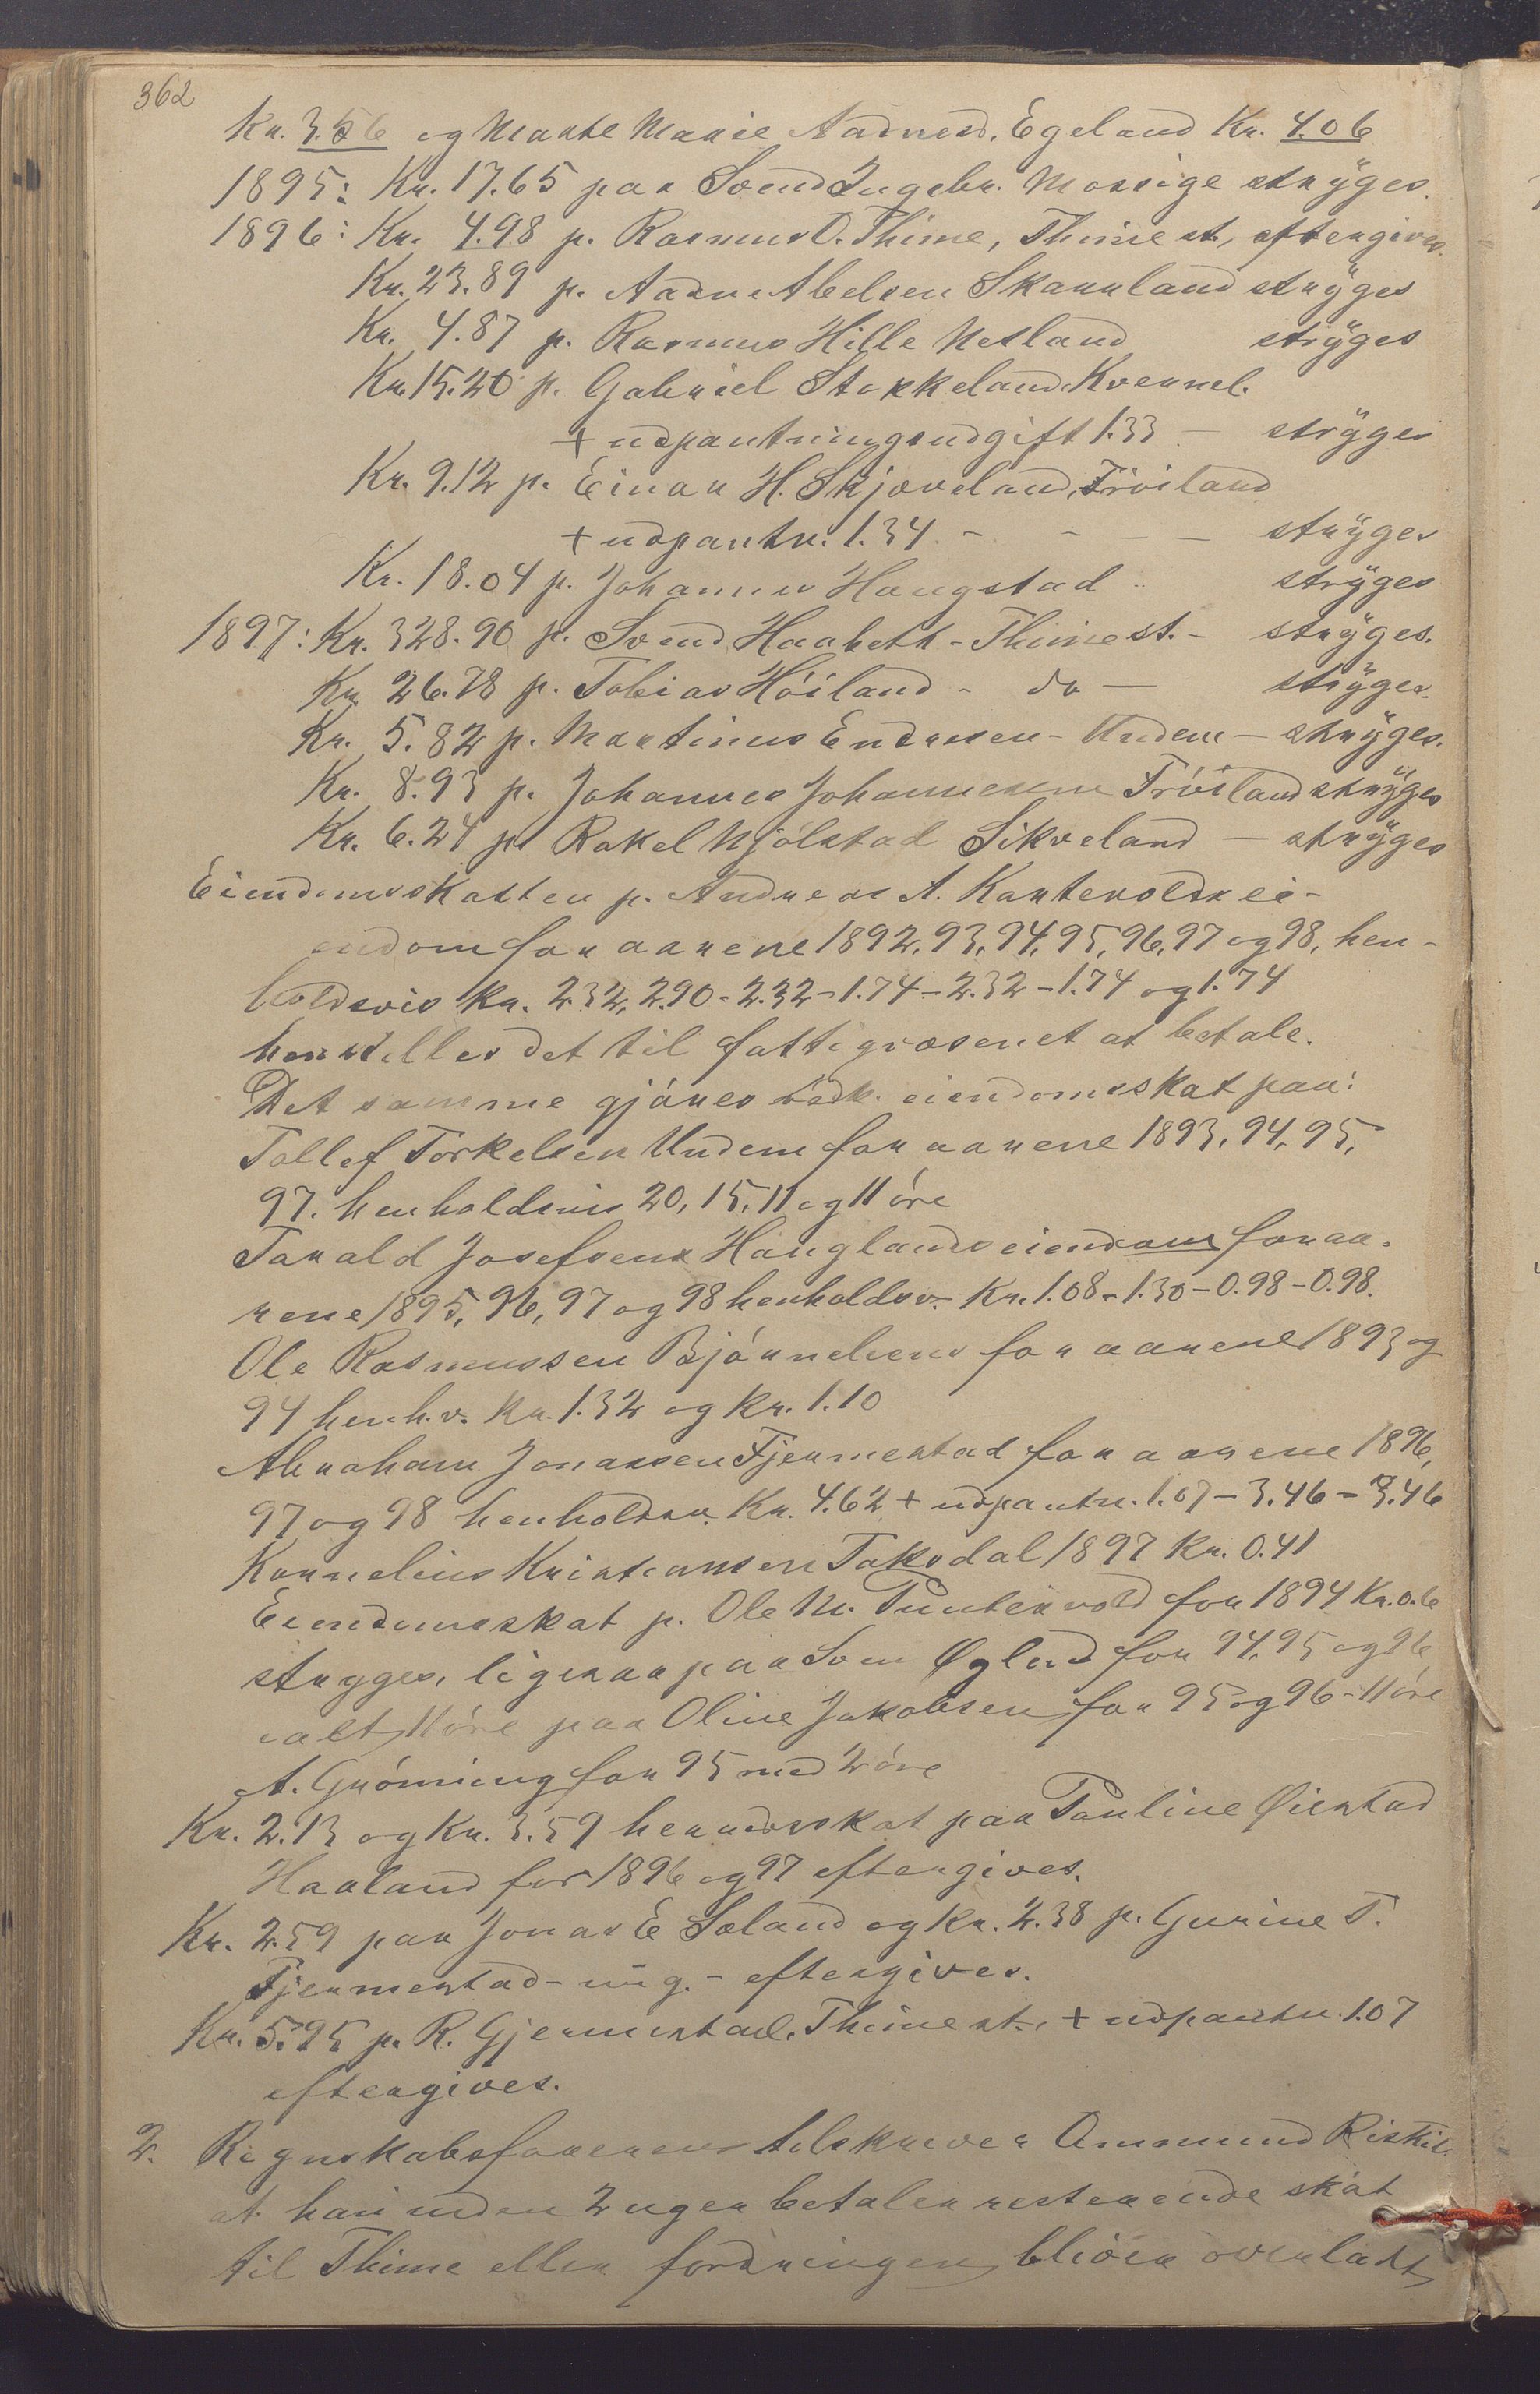 362
Kr. 3.56 og Marte Marie Aadnesd. Egeland Kr. 4.06
1895: Kr. 17.65 paa Svend Ingebr. Mossige stryges.
1896: Kr. 4.98 p. Rasmus O. Thime, Thime st., eftergives.
Kr. 23.89 p. Aadne Abelsen Skaarland stryges
Kr. 4.87 p. Rasmus Hille Netland stryges
Kr. 15.20 p. Gabriel Stokkeland Kvernel.
+ udpantningsudgift 1.33 — stryges
Kr. 9.12 p. Einar H. Skjæveland, Fröiland
+ udpantn. 1.34 - - - — stryges
Kr. 18.04 p. Johannes Haugstad .. stryges
1897: Kr. 328.90 p. Svend Haabeth - Thime st. - stryges.
Kr. 26.78 p. Tobias Höiland - do — stryges.
Kr. 5.82 p. Martinus Endresen - Undem — stryges.
Kr. 8.93 p. Johannes Johannesen Fröiland stryges
Kr. 6.24 p. Rakel Njølstad Sikveland — stryges
Eiendomsskatten p. Andreas A. Kartevolds ei-
endom for aarene 1892, 93, 94, 95, 96, 97 og 98, hen-
holdsvis Kr. 2.32, 2.90 - 2.32 - 1.74 - 2.32 - 1.74 og 1.74
henstilles det til fattigvæsenet at betale.
Det samme gjöres vedk. eiendomsskat paa:
Tollef Torkelsen Undem for aarene 1893, 94, 95,
97. henholdsvis 20, 15, 11 og 11 öre
Tarald Josefsens Hauglands eiendom for aa-
rene 1895, 96, 97 og 98 henholdsv. Kr. 1.08 - 1.30 - 0.98 - 0.98.
Ole Rasmussen Bjórnehens for aarene 1893 og
94 henh.v. Kr. 1.32 og Kr. 1.10
Abraham Jonassen Fjermestad for aarene 1896,
97 og 98 henholdsv. Kr. 4.62 + udpantn. 1.07 - 3.46 - 3.46
Kornelius Kristiansen Taksdal 1897 Kr. 0.41
Eiendomsskat p. Ole M. Puntervold for 1894 Kr. 0.6
stryges, ligesaa paa Sven Øglend for 94, 95 og 96
ialt 11 öre paa Oline Jakobsen for 95 og 96 - 11 öre
A. Gröning for 95 med 2 öre
Kr. 2.13 og Kr. 3.59 herredsskat paa Pauline Øiestad
Haaland for 1896 og 97 eftergives.
Kr. 2.59 paa Jonas E Sæland og Kr. 2.38 p. Gurine T.
Fjermestad - ug. - eftergives.
Kr. 5.95 p. R. Gjermestad. Thime st. + udpantn. 1.07
eftergives.
2. Regnskabsföreren tilskriver Ommund Riskil.
at han inden 2 uger betaler resterende skat
til Thime eller fordringen bliver overladt